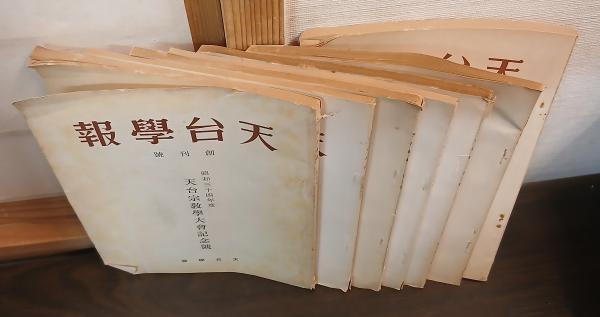 天台學報
創刊號
昭和三十四年度
天台宗教學大會記念號
天台學會
天台